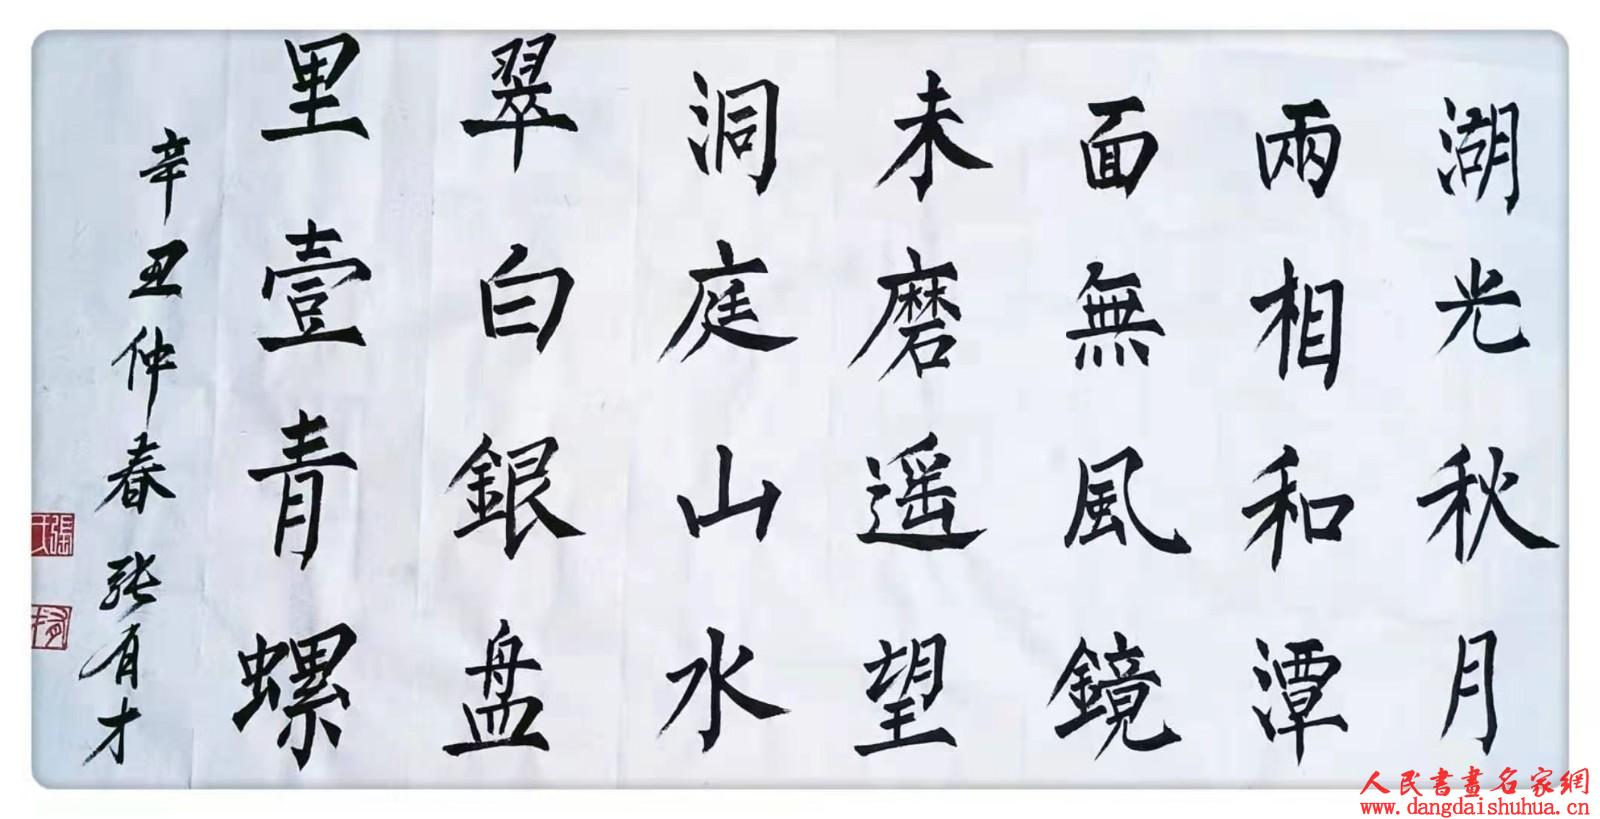 湖光秋月
兩相和潭
面無風鏡
未磨遥望
洞庭山水
翠白銀盘
里壹青螺
辛丑仲春 张有才
張
有才
人民書畫名家網
www.dangdaishuhua.cn